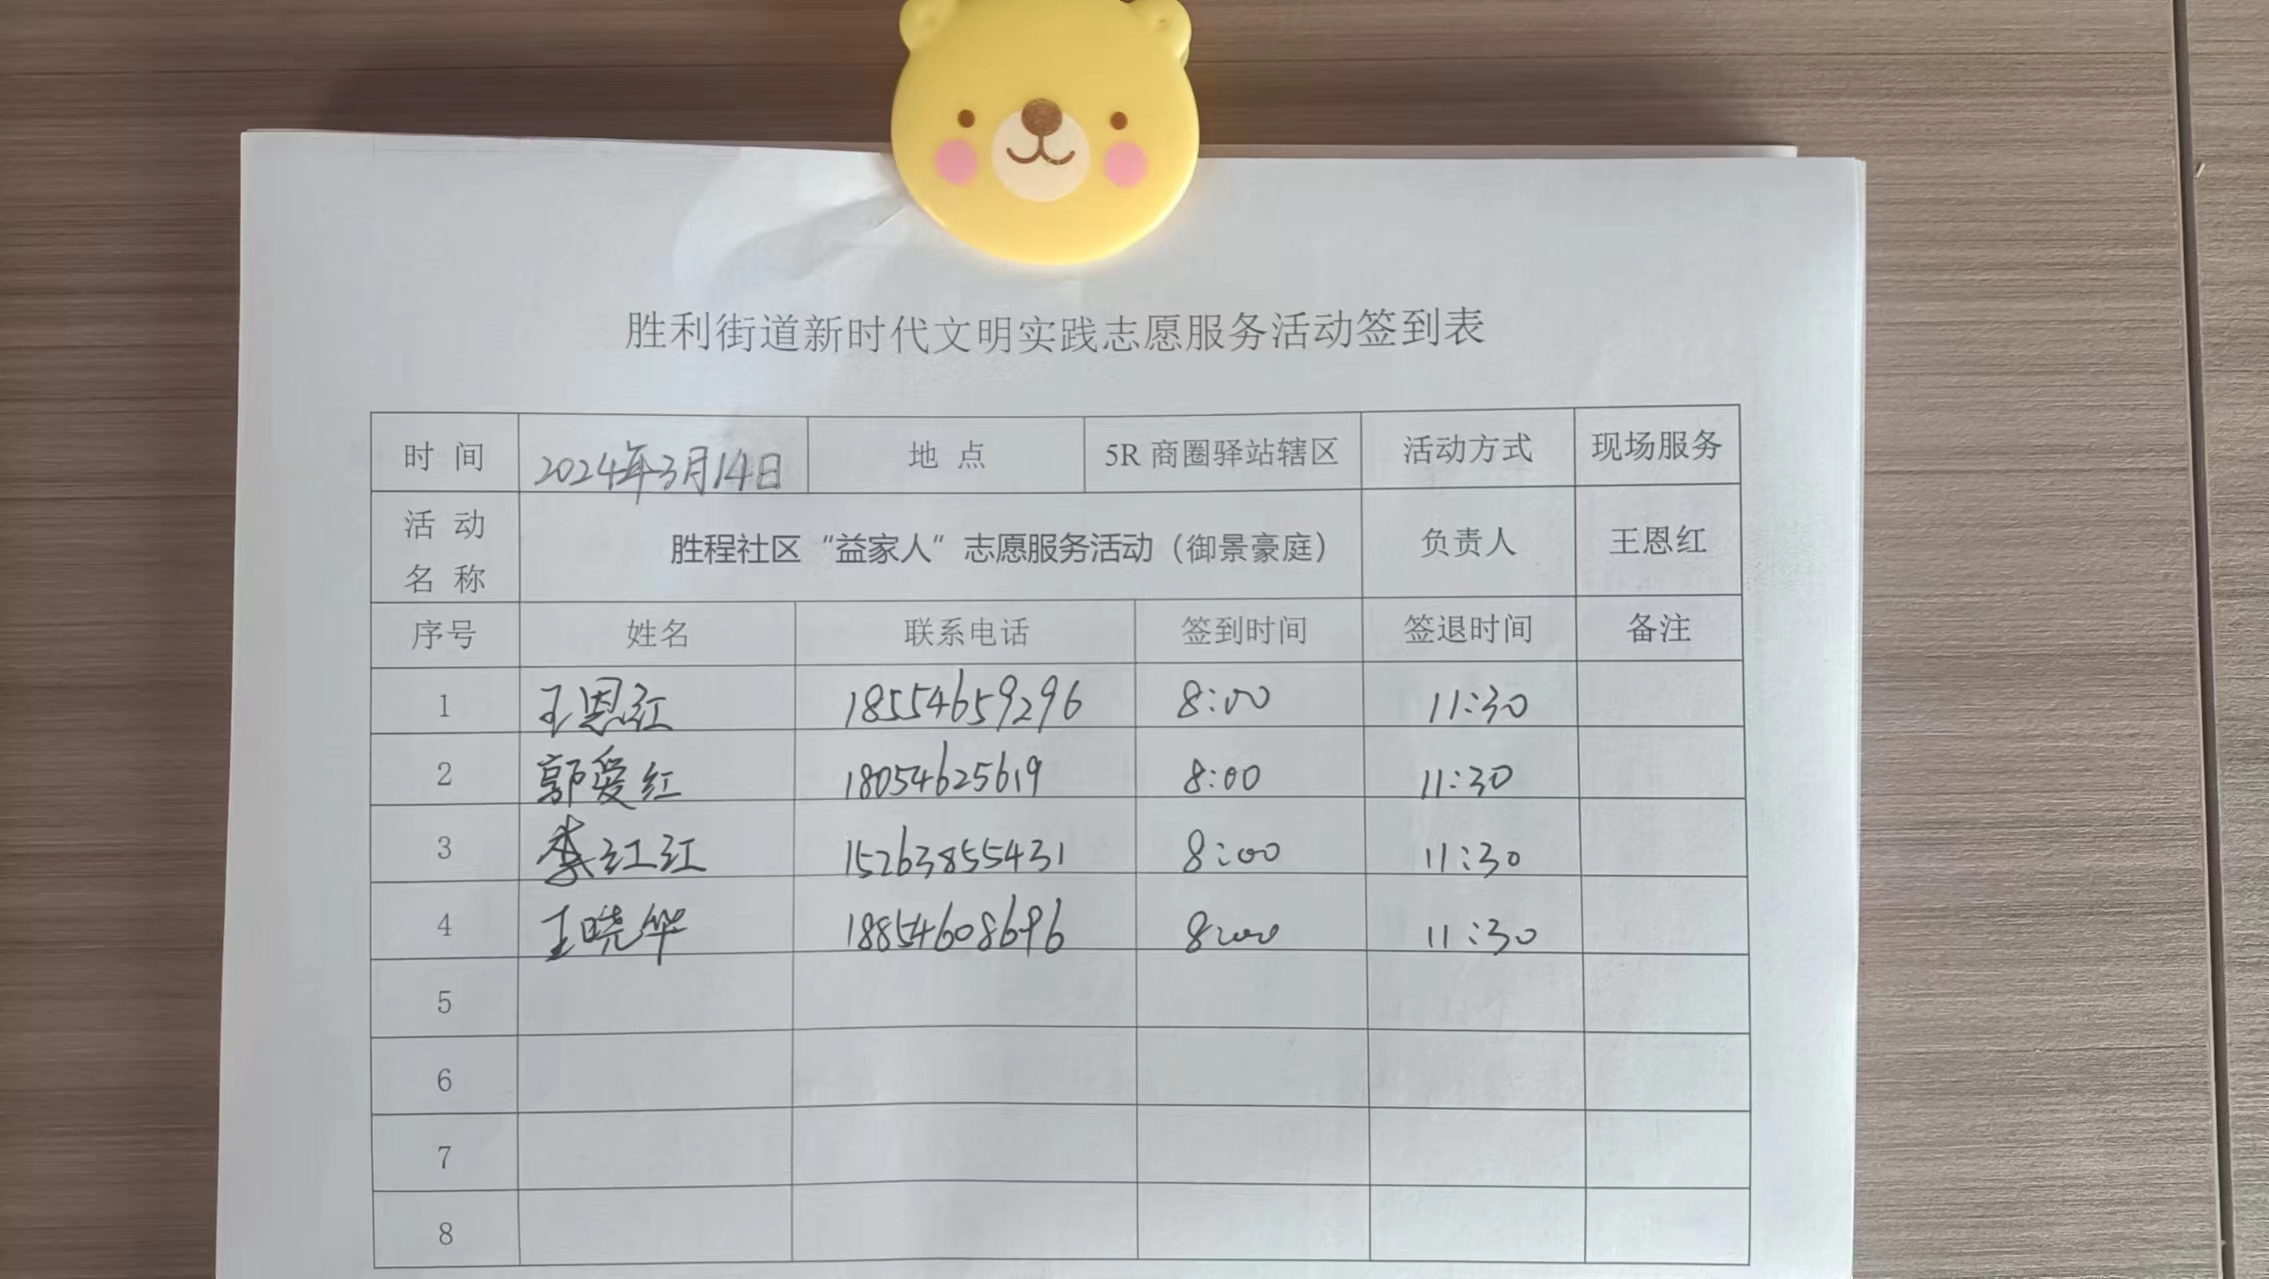 胜利街道新时代文明实践志愿服务活动签到表
时 间 2024年3月14日 地 点 5R 商圈驿站辖区 活动方式 现场服务
活 动 名 称 胜程社区“益家人”志愿服务活动（御景豪庭） 负责人 王恩红
序号 姓名 联系电话 签到时间 签退时间 备注
1 王恩红 18554659296 8:00 11:30
2 郭爱红 18054625619 8:00 11:30
3 李红红 15263855431 8:00 11:30
4 王晓华 18854608696 8:00 11:30
5
6
7
8